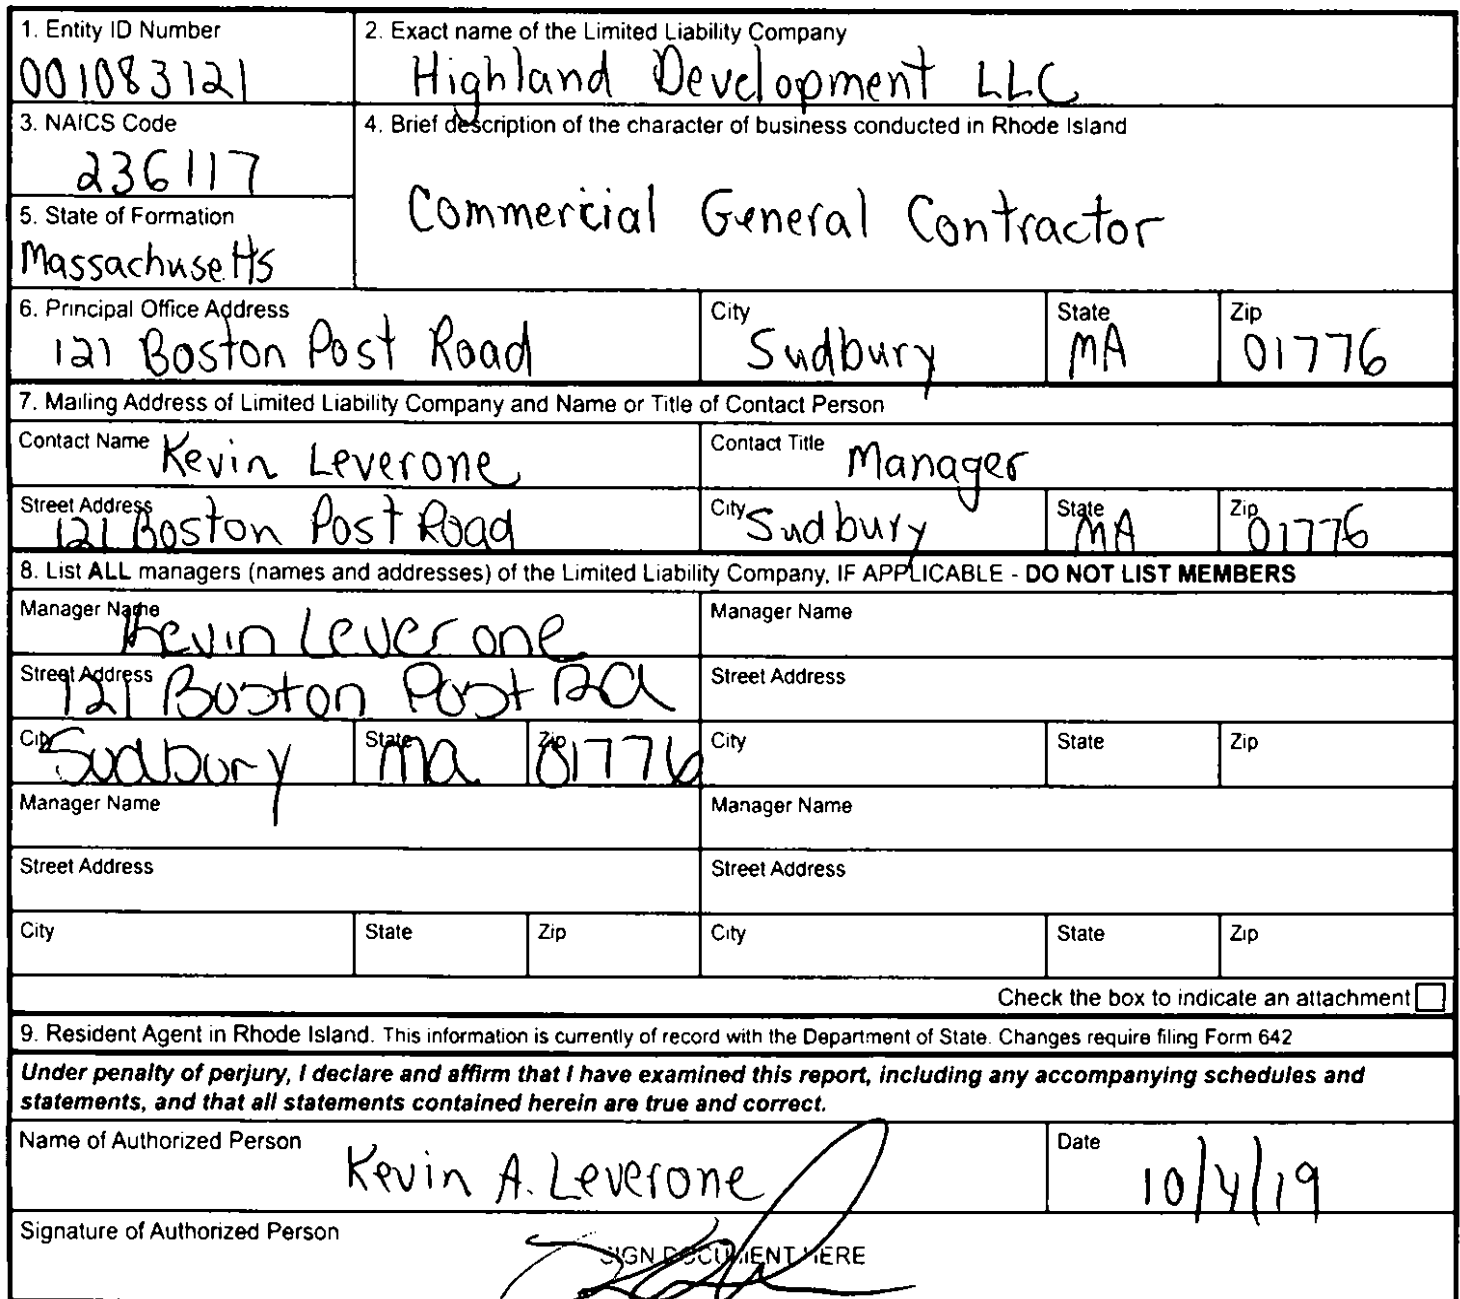 1. Entity ID Number
001083121
2. Exact name of the Limited Liability Company
Highland Development LLC
3. NAICS Code
236117
4. Brief description of the character of business conducted in Rhode Island
Commercial General Contractor
5. State of Formation
Massachusetts
6. Principal Office Address
121 Boston Post Road
City
Sudbury
State
MA
Zip
01776
7. Mailing Address of Limited Liability Company and Name or Title of Contact Person
Contact Name Kevin Leverone
Contact Title Manager
Street Address
121 Boston Post Road
City Sudbury
State
MA
Zip
01776
8. List ALL managers (names and addresses) of the Limited Liability Company, IF APPLICABLE - DO NOT LIST MEMBERS
Manager Name
Kevin Leverone
Manager Name
Street Address
121 Boston Post Rd
Street Address
City
Sudbury
State
Ma
Zip
01776
City
State
Zip
Manager Name
Manager Name
Street Address
Street Address
City
State
Zip
City
State
Zip
Check the box to indicate an attachment
9. Resident Agent in Rhode Island. This information is currently of record with the Department of State. Changes require filing Form 642
Under penalty of perjury, I declare and affirm that I have examined this report, including any accompanying schedules and
statements, and that all statements contained herein are true and correct.
Name of Authorized Person
Kevin A. Leverone
Date
10/4/19
Signature of Authorized Person
SIGN DOCUMENT HERE